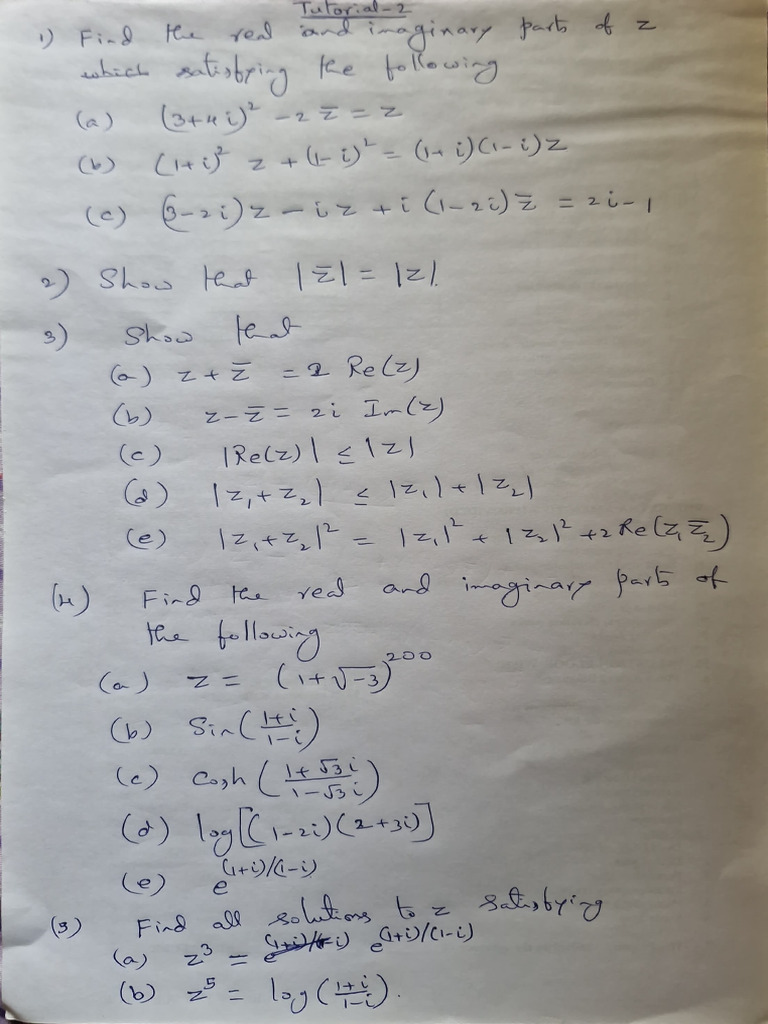 Tutorial-2
1) Find the real and imaginary parts of z
which satisfying the following
(a) (3+4i)² - 2 z̅ = z
(b) (1+i)² z + (1-i)² = (1+i)(1-i)z
(c) (3-2i)z - iz + i(1-2i)z̅ = 2i-1
2) Show that |z̅| = |z|.
3) Show that
(a) z + z̅ = 2 Re(z)
(b) z - z̅ = 2i Im(z)
(c) |Re(z)| ≤ |z|
(d) |z₁+z₂| ≤ |z₁| + |z₂|
(e) |z₁+z₂|² = |z₁|² + |z₂|² + 2 Re(z₁z̅₂)
(4) Find the real and imaginary parts of
the following
(a) z = (1+√-3)²⁰⁰
(b) Sin((1+i)/(1-i))
(c) Cosh((1+√3i)/(1-√3i))
(d) log[(1-2i)(2+3i)]
(e) e^(1+i)/(1-i)
(5) Find all solutions to z satisfying
(a) z³ = e^(1+i)/(1-i)
(b) z⁵ = log((1+i)/(1-i)).